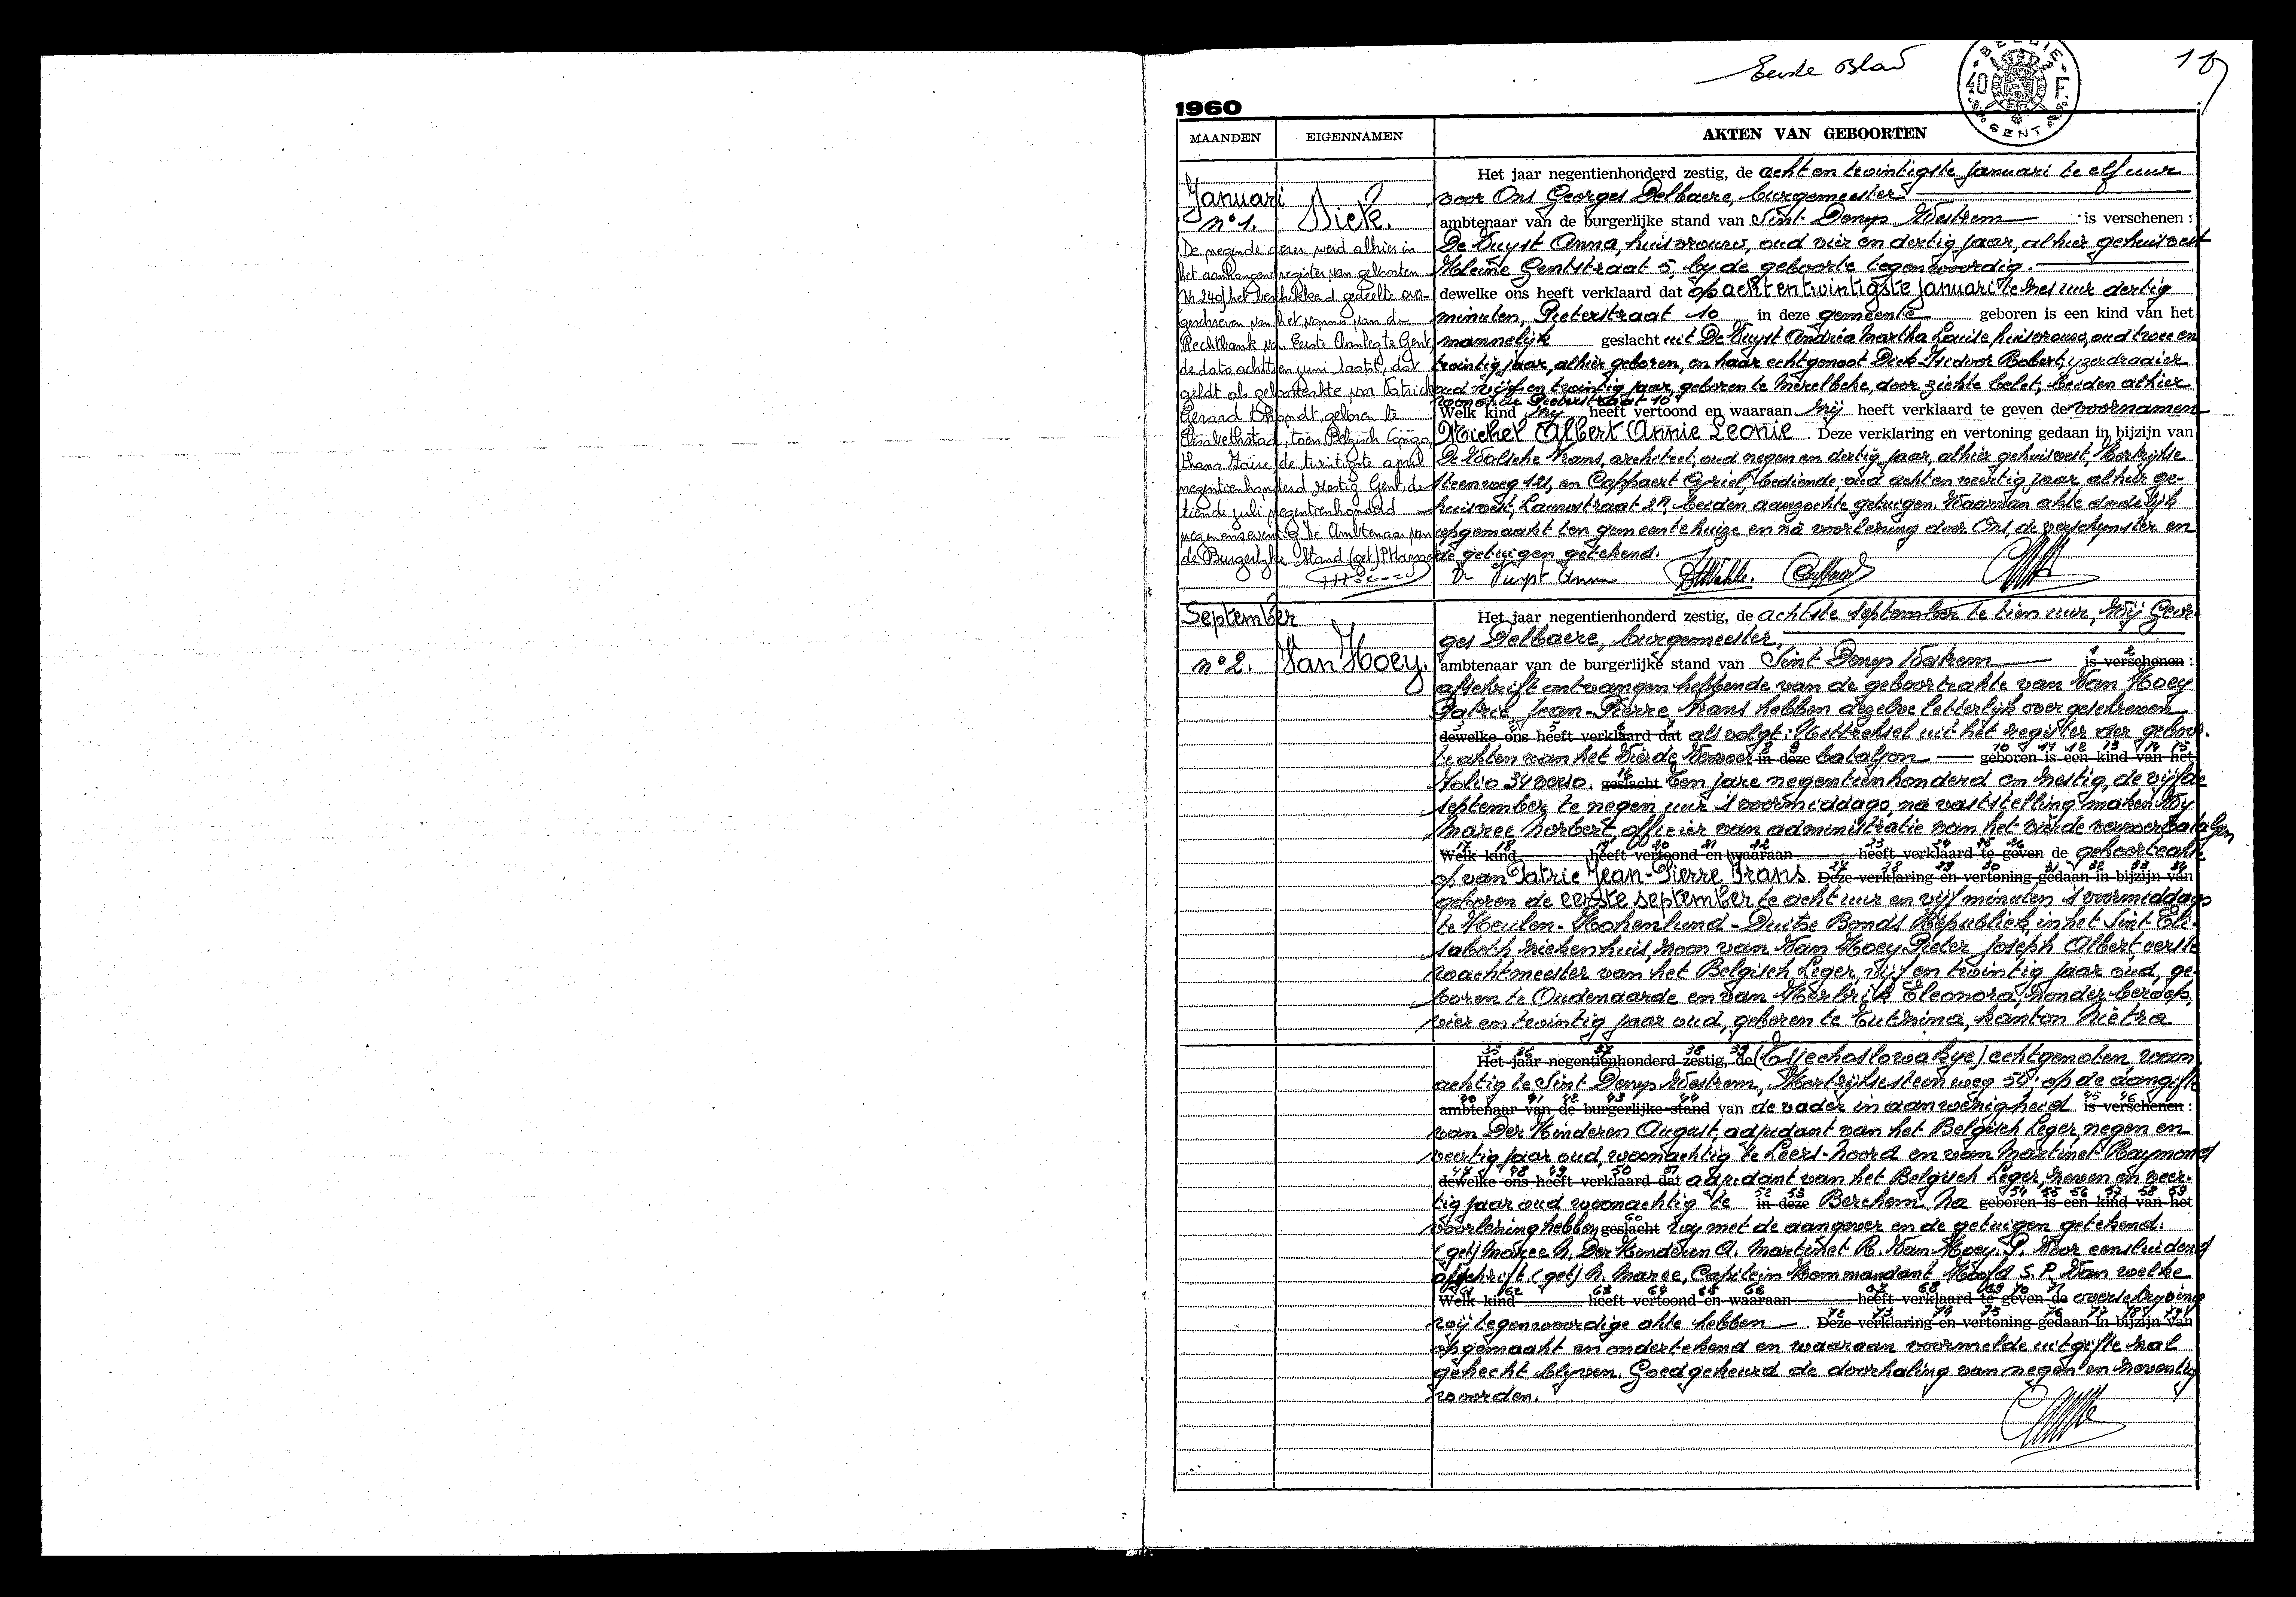 Eerste Blad
BELGIE
40
GENT
1960
MAANDEN
EIGENNAMEN
AKTEN VAN GEBOORTEN
Januari
n° 1.
Dick.
De negende dezer werd alhier in
het aanhangend register van geboorten
Nr 240 het beschikkend gedeelte over-
geschreven van het vonnis van de
Rechtbank van Eerste Aanleg te Gent,
de dato achttien juni laatst, dat
geldt als geboorteakte van Patrick
Gerard Dhondt, geboren te
Elisabethstad, toen Belgisch Congo,
thans Zaïre, de twintigste april
negentienhonderd zestig. Gent, de
tiende juli negentienhonderd
negenenzeventig. De Ambtenaar van
de Burgerlijke Stand (get)
Het jaar negentienhonderd zestig, de acht en twintigste januari te elf uur
voor Ons Georges Delbaere, burgemeester
ambtenaar van de burgerlijke stand van Sint Denys Westrem is verschenen :
De Vuyst Anna, huisvrouw, oud vier en dertig jaar, alhier gehuisvest
Kleine Gentstraat 5, bij de geboorte tegenwoordig.
dewelke ons heeft verklaard dat op acht en twintigste januari te zes uur dertig
minuten, Pieterstraat 10 in deze gemeente geboren is een kind van het
mannelijk geslacht uit De Vuyst Andréa Martha Louise, huisvrouw, oud twee en
twintig jaar, alhier geboren, en haar echtgenoot Dick Isidoor Robert, yzerdraaier
oud vijf en twintig jaar, geboren te Merelbeke, door ziekte belet, beiden alhier
wonende Pieterstraat 10
Welk kind zij heeft vertoond en waaraan zij heeft verklaard te geven de voornamen
Michel Albert Annie Leonie. Deze verklaring en vertoning gedaan in bijzijn van
De Walsche Frans, architect, oud negen en dertig jaar, alhier gehuisvest, Kortrijkse
steenweg 121, en Cappaert Cyriel, bediende, oud acht en veertig jaar alhier ge-
huisvest, Lauwstraat 27, beiden aanzochte getuigen. Waarvan akte dadelijk
opgemaakt ten gemeentehuize en na voorlezing door Ons, de verschijnster en
de getuigen getekend.
De Vuyst Anna
September
n° 2.
Van Hoey.
Het jaar negentienhonderd zestig, de achtste september te tien uur, Wij Geor
ges Delbaere, burgemeester,
1 2
ambtenaar van de burgerlijke stand van Sint Denys Westrem is verschenen :
afschrift ontvangen hebbende van de geboorteakte van Van Hoey
Patric Jean-Pierre Frans hebben dezelve letterlijk overgeschreven
dewelke ons heeft verklaard dat als volgt: Uittreksel uit het register der geboor-
8 9 10 11 12 13 14 15
teakten van het Vierde Vervoer in deze bataljon geboren is een kind van het
16
Folio 34 verso. geslacht Ten jare negentienhonderd en zestig, de vijfde
september te negen uur 's voormiddags, na vaststelling maken Wij
Maree Norbert, officier van administratie van het vierde vervoerbataljon
17 18 19 20 21 22 23 24 25 26
Welk kind heeft vertoond en waaraan heeft verklaard te geven de geboorteakte
27 28 29 30 31 32 33 34
op van Patric Jean-Pierre Frans. Deze verklaring en vertoning gedaan in bijzijn van
geboren de eerste september te acht uur en vijf minuten 's voormiddags
te Keulen-Hohenlind-Duitse Bonds Republiek, in het Sint Eli-
sabeth ziekenhuis, zoon van Van Hoey Pieter Joseph Albert, eerste
wachtmeester van het Belgisch Leger, vijf en twintig jaar oud, ge-
boren te Oudenaarde en van Herbrik Eleonora, zonder beroep,
vier en twintig jaar oud, geboren te Tutznina, kanton Nietra
35 36 37 38 39
Het jaar negentienhonderd zestig, de (Tsjechoslowakye) echtgenoten, woon
achtig te Sint Denys Westrem, Kortrijksesteenweg 50; op de aangifte
40 41 42 43 44 45 46
ambtenaar van de burgerlijke stand van de vader in aanwezigheid is verschenen :
van Der Kinderen August, adjudant van het Belgisch Leger, negen en
veertig jaar oud, woonachtig te Leers-Noord en van Martinet Raymond
47 48 49 50 51
dewelke ons heeft verklaard dat adjudant van het Belgisch Leger, zeven en veer-
52 53 54 55 56 57 58 59
tig jaar oud woonachtig te in deze Berchem. Na geboren is een kind van het
60
voorlezing hebben geslacht wij met de aangever en de getuigen getekend.
(get) Maree N. Der Kinderen A. Martinet R. Van Hoey. P. Voor eensluidend
afschrift (get) N. Maree, Capitein Kommandant Hoofd S.P. Van welke
61 62 63 64 65 66 67 68 69 70 71
Welk kind heeft vertoond en waaraan heeft verklaard te geven de overschryving
72 73 74 75 76 77 78 79
wij tegenwoordige akte hebben. Deze verklaring en vertoning gedaan in bijzijn van
opgemaakt en ondertekend en waaraan voormelde uitgifte zal
gehecht blyven. Goedgekeurd de doorhaling van negen en zeventig
woorden.